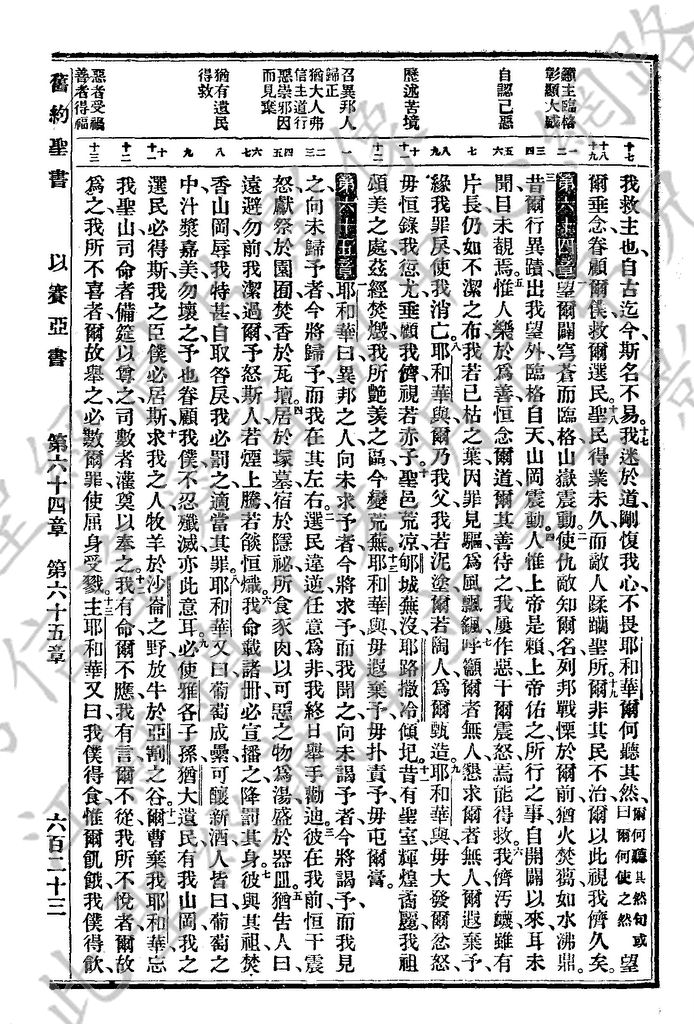 籲主臨格
彰顯大威
自認已惡
歷述苦境
召異邦人
歸正
猶大人弗
信主道行
惡崇邪因
而見棄
猶有遺民
得救
惡者受禍
善者得福
十七
十八
十九
一
二
三
四
五
六
七
八
九
十
十一
十二
一
二
三
四
五
六
七
八
九
十
十一
十二
十三
我救主也自古迄今斯名不易。十七我迷於道剛愎我心不畏耶和華爾何聽其然爾何聽其然句或曰爾何使之然望
爾垂念眷顧爾僕救爾選民、十八聖民得業未久而敵人蹂躪聖所、十九爾非其民不治爾以此視我儕久矣。
第六十四章一望爾闢穹蒼而臨格山嶽震動二使仇敵知爾名列邦戰慄於爾前猶火焚蒭如水沸鼎。
三昔爾行異蹟出我望外臨格自天山岡震動、四人惟上帝是賴上帝佑之所行之事自開闢以來耳未
聞目未覩焉五惟人樂於爲善恒念爾道爾其善待之我屢作惡干爾震怒焉能得救六我儕汚衊雖有
片長仍如不潔之布我若已枯之葉因罪見驅爲風飄颻七呼籲爾者無人懇求爾者無人爾遐棄予、
緣我罪戾使我消亡、八耶和華與爾乃我父我若泥塗爾若陶人爲爾甄造九耶和華與毋大發爾忿怒
毋恒錄我愆尤垂顧我儕視若赤子十聖邑荒凉郇城蕪沒耶路撒冷傾圮、十一昔有聖室輝煌啇麗我祖
頌美之處玆經焚燬我所艷羡之區今變荒蕪、十二耶和華與毋遐棄予毋扑責予毋屯爾膏。
第六十五章一耶和華曰異邦之人向未求予者今將求予而我聞之向未謁予者今將謁予而我見
之向未歸予者今將歸予而我在其左右、二選民違逆任意爲非我終日舉手勸迪三彼在我前恒干震
怒獻祭於園囿焚香於瓦壇四居於塚墓宿於隱祕所食豕肉以可惡之物爲湯盛於器皿五猶告人曰
遠避勿前我潔過爾予怒斯人若煙上騰若燄恒熾六我命載諸册必宣播之降罰其身七彼與其祖焚
香山岡辱我特甚自取咎戾我必罰之適當其罪、八耶和華又曰葡萄成纍可釀新酒人皆曰葡萄之
中汁漿嘉美勿壞之予也眷顧我僕不忍殲滅亦此意耳九必使雅各子孫猶大遺民有我山岡我之
選民必得斯我之臣僕必居斯、十求我之人牧羊於沙崙之野放牛於亞割之谷、十一爾曹棄我耶和華忘
我聖山司命者備筵以尊之司數者灌奠以奉之、十二我有命爾不應我有言爾不從我所不悅者爾故
爲之我所不喜者爾故舉之必數爾罪使屈身受戮、十三主耶和華又曰我僕得食惟爾飢餓我僕得飲
舊約聖書 以賽亞書 第六十四章 第六十五章 六百二十三